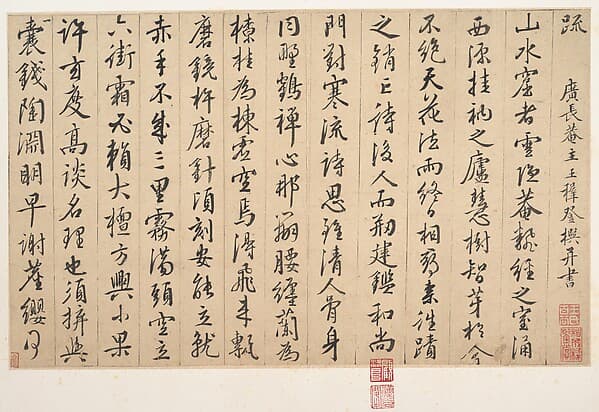 疏
廣長菴主王穉登撰并書
山水窟者雲隱菴翻經之室涌
西源挂衲之廬慧樹智芽於今
不絕天花法雨終日相尋往蹟
之銷亡待後人而刱建鑑和尚
門對寒流詩思雖清人骨身
同野鶴禪心那腰纏蘭為
橑桂為棟空焉得飛來甎
磨鏡杵磨針頃刻安能立就
赤手不成三里霧滿頭空立
六街霜必賴大檀方興小果
許玄度高談名理也須拚與
囊錢陶淵明早謝簪纓同